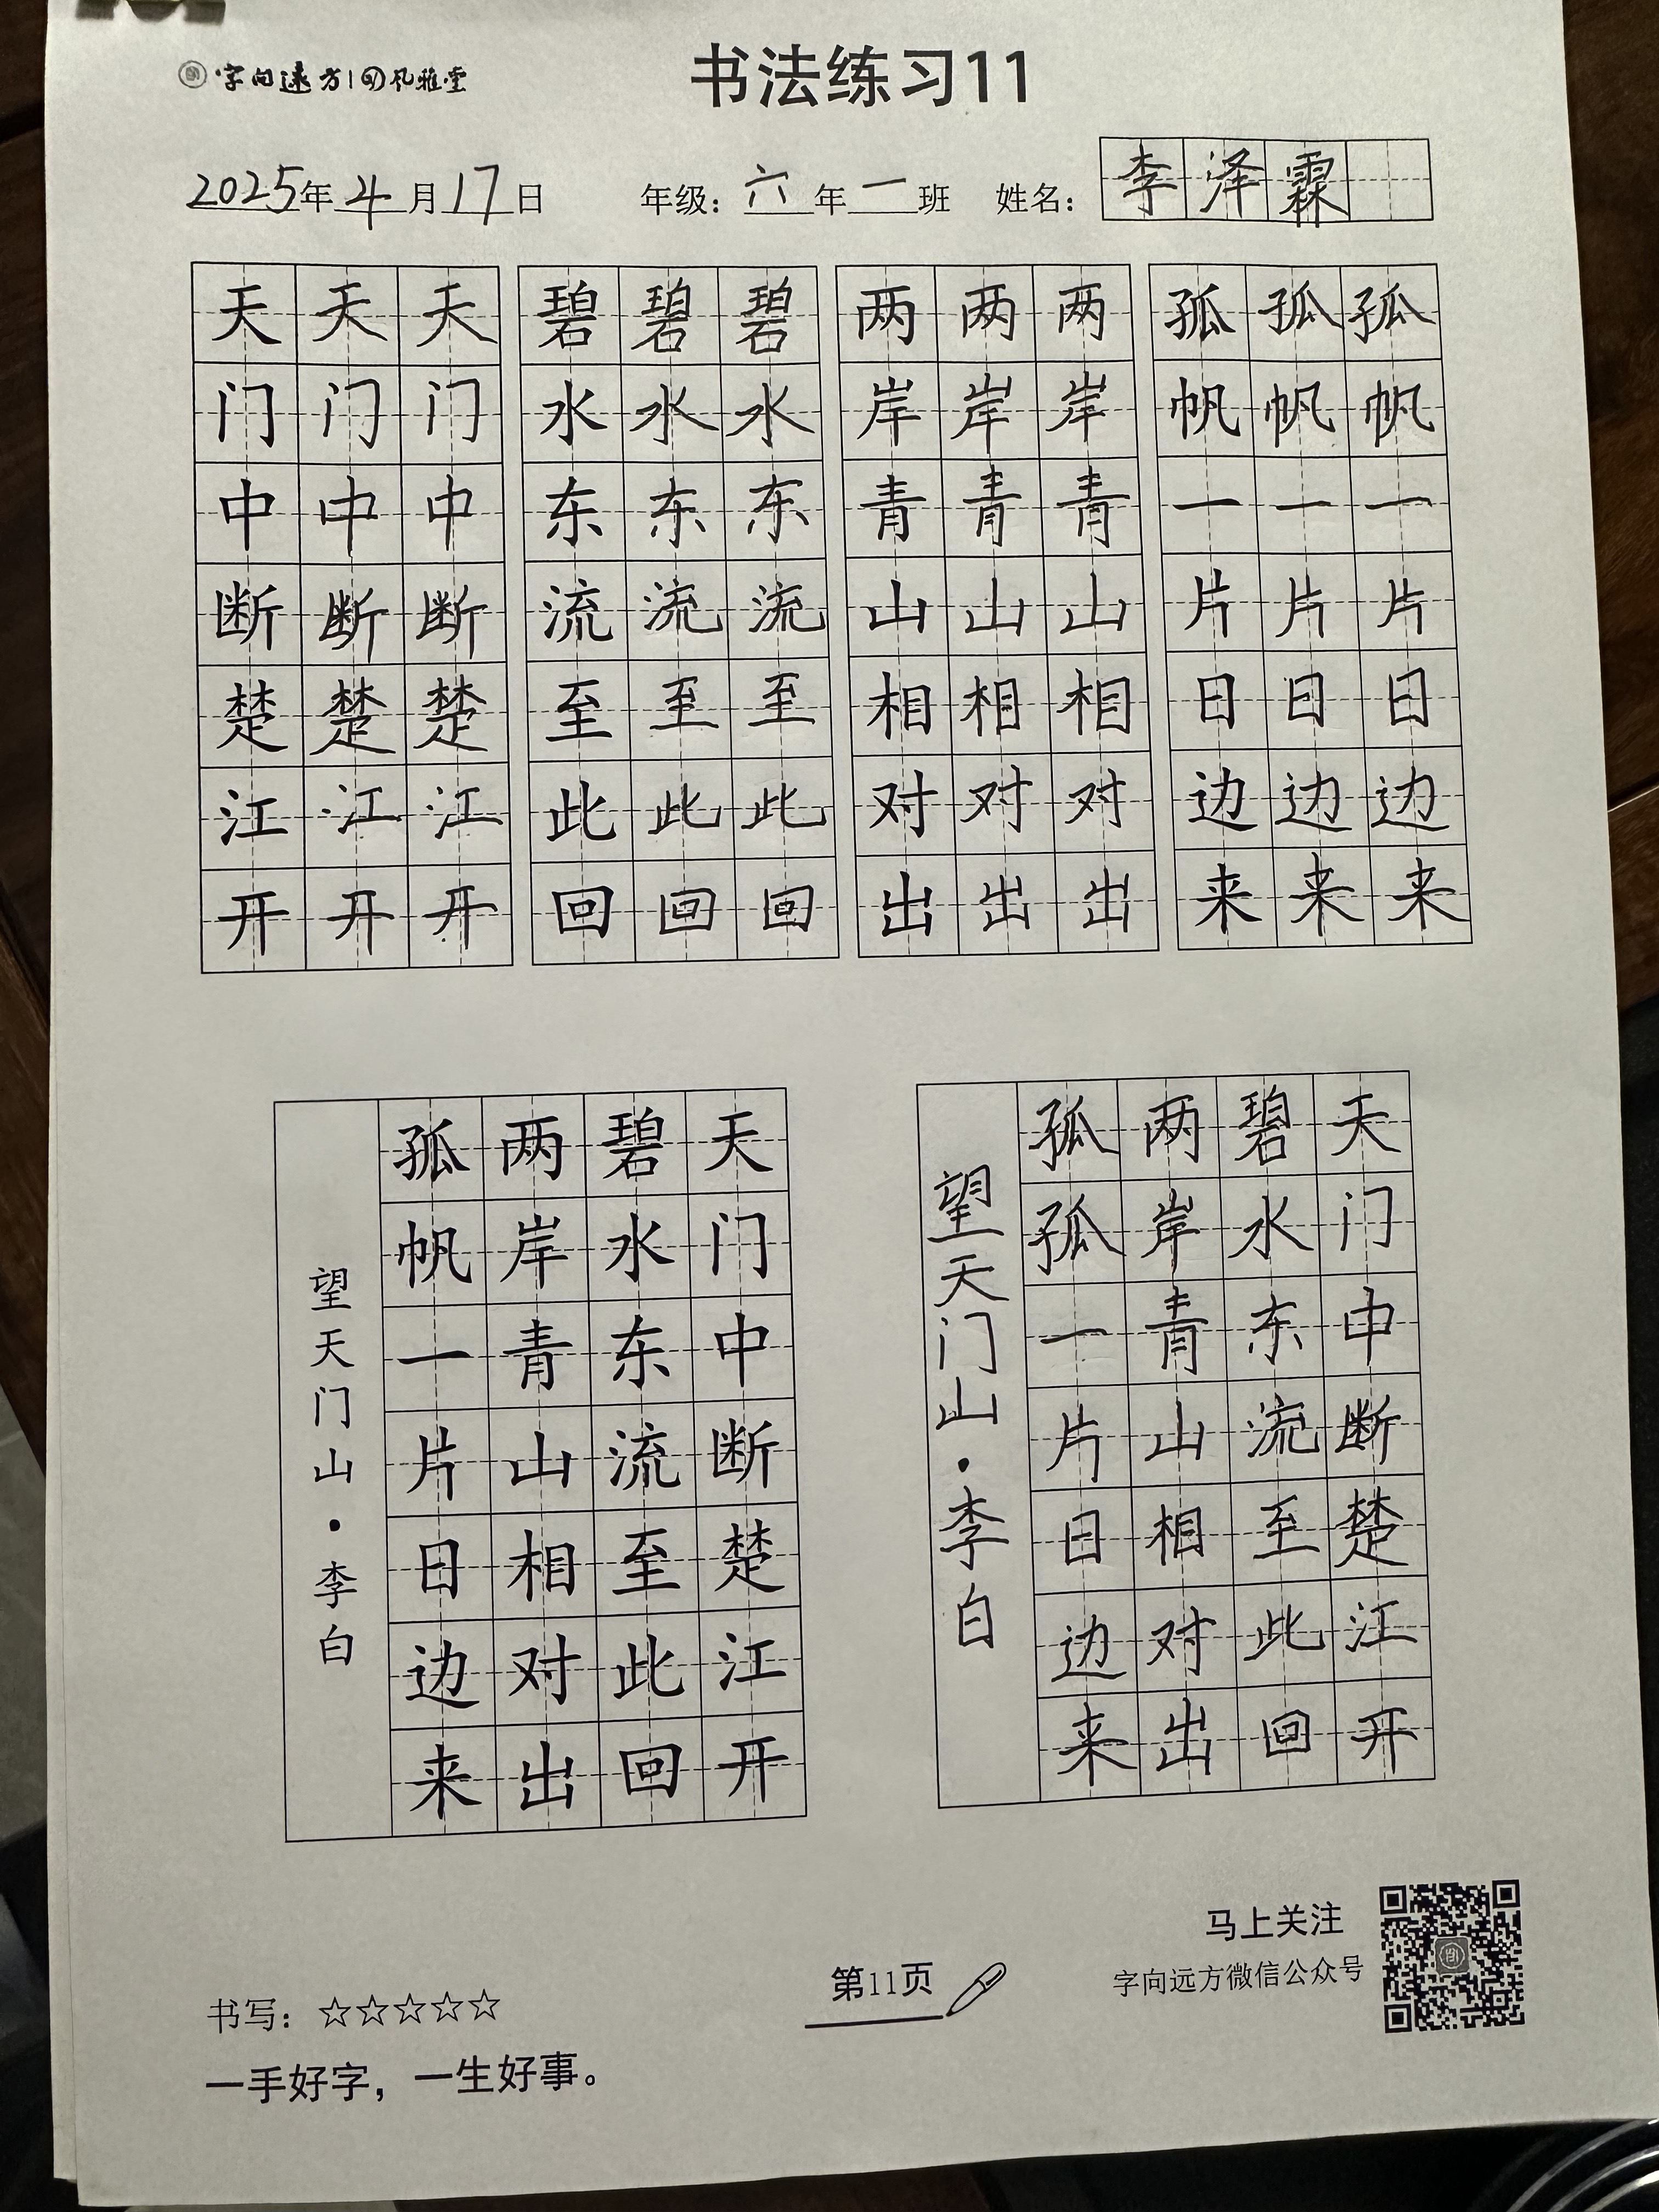 字向远方|风雅堂
书法练习11
2025年4月17日 年级：六年一班 姓名：李泽霖
天天天 碧碧碧 两两两 孤孤孤
门门门 水水水 岸岸岸 帆帆帆
中中中 东东东 青青青 一一一
断断断 流流流 山山山 片片片
楚楚楚 至至至 相相相 日日日
江江江 此此此 对对对 边边边
开开开 回回回 出出出 来来来
天门中断楚江开
碧水东流至此回
两岸青山相对出
孤帆一片日边来
望天门山·李白
天门中断楚江开
碧水东流至此回
两岸青山相对出
孤孤一片日边来
望天门山·李白
书写：☆☆☆☆☆
一手好字，一生好事。
第11页
马上关注
字向远方微信公众号